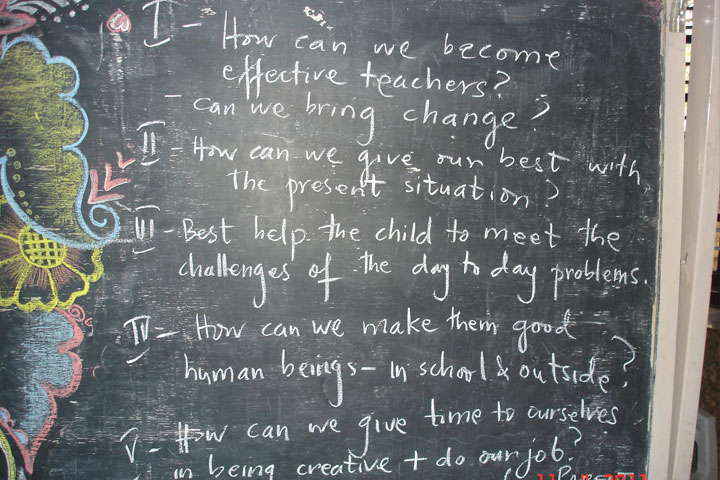 I - How can we become
effective teachers?
- can we bring change?
II - How can we give our best with
the present situation?
III - Best help the child to meet the
challenges of the day to day problems.
IV - How can we make them good
human beings - in school & outside?
V - How can we give time to ourselves
in being creative + do our job?